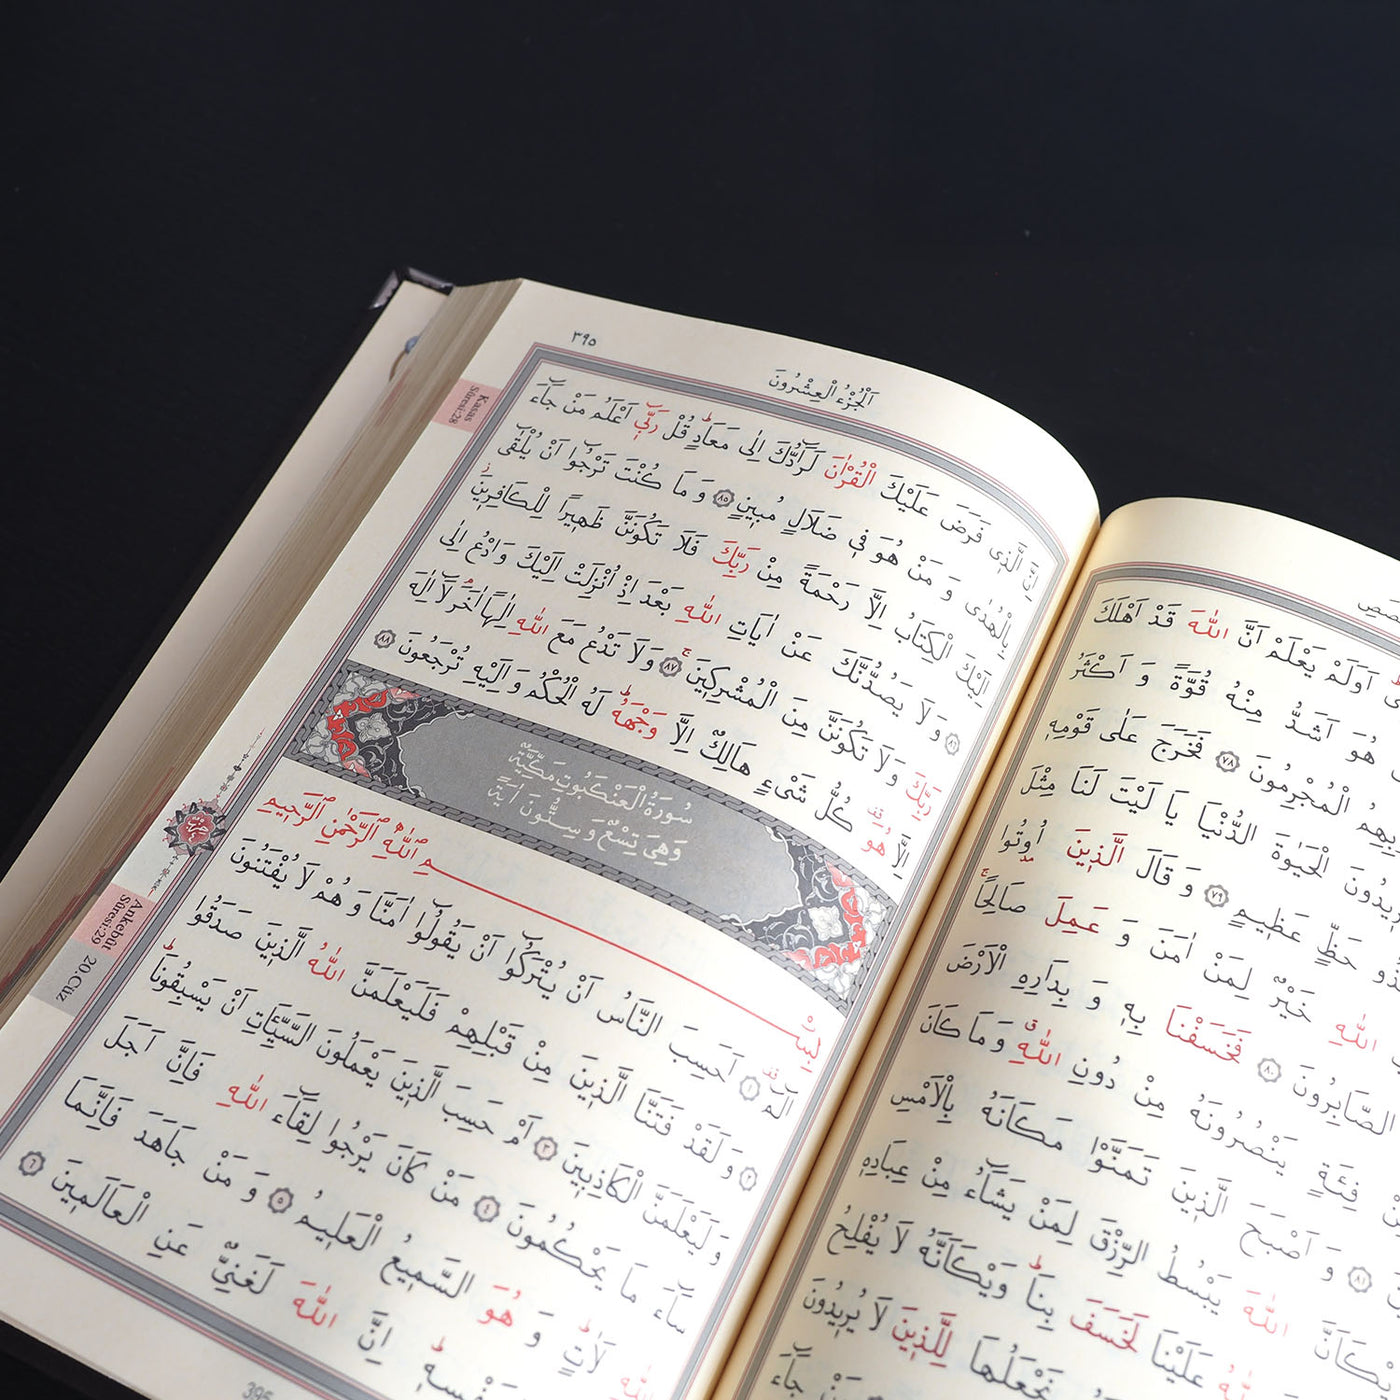 اَوَلَمْ يَعْلَمْ اَنَّ اللّٰهَ قَدْ اَهْلَكَ
هُوَ اَشَدُّ مِنْهُ قُوَّةً وَ اَكْثَرُ
الْمُجْرِمُونَ ٧٨ فَخَرَجَ عَلٰى قَوْمِهٖ
الْحَيٰوةَ الدُّنْيَا يَا لَيْتَ لَنَا مِثْلَ
حَظٍّ عَظٖيمٍ ٧٩ وَ قَالَ الَّذٖينَ اُو۫تُوا
اللّٰهِ خَيْرٌ لِمَنْ اٰمَنَ وَ عَمِلَ صَالِحًا
الصَّابِرُونَ ٨٠ فَخَسَفْنَا بِهٖ وَ بِدَارِهِ الْاَرْضَ
فِئَةٍ يَنْصُرُونَهُ مِنْ دُونِ اللّٰهِ وَمَا كَانَ
٨١ وَ اَصْبَحَ الَّذٖينَ تَمَنَّوْا مَكَانَهُ بِالْاَمْسِ
اللّٰهَ يَبْسُطُ الرِّزْقَ لِمَنْ يَشَٓاءُ مِنْ عِبَادِهٖ
عَلَيْنَا لَخَسَفَ بِنَا وَيْكَاَنَّهُ لَا يُفْلِحُ
نَجْعَلُهَا لِلَّذٖينَ لَا يُرٖيدُونَ
جَٓاءَ
٣٩٥
اَلْجُزْءُ الْعِشْرُونَ
Kasas Sûresi:28
اِنَّ الَّذٖى فَرَضَ عَلَيْكَ الْقُرْاٰنَ لَرَٓادُّكَ اِلٰى مَعَادٍ قُلْ رَبّٖٓى اَعْلَمُ مَنْ جَٓاءَ
بِالْهُدٰى وَ مَنْ هُوَ فٖى ضَلَالٍ مُبٖينٍ ٨٥ وَ مَا كُنْتَ تَرْجُٓوا اَنْ يُلْقٰٓى
اِلَيْكَ الْكِتَابُ اِلَّا رَحْمَةً مِنْ رَبِّكَ فَلَا تَكُونَنَّ ظَهٖيرًا لِلْكَافِرٖينَ
٨٦ وَ لَا يَصُدُّنَّكَ عَنْ اٰيَاتِ اللّٰهِ بَعْدَ اِذْ اُنْزِلَتْ اِلَيْكَ وَادْعُ اِلٰى
رَبِّكَ وَلَا تَكُونَنَّ مِنَ الْمُشْرِكٖينَ ٨٧ وَلَا تَدْعُ مَعَ اللّٰهِ اِلٰهًا اٰخَرَ لَٓا اِلٰهَ
اِلَّا هُوَ كُلُّ شَىْءٍ هَالِكٌ اِلَّا وَجْهَهُ لَهُ الْحُكْمُ وَ اِلَيْهِ تُرْجَعُونَ ٨٨
سُورَةُ الْعَنْكَبُوتِ مَكِّيَّةٌ
وَهِىَ تِسْعٌ وَ سِتُّونَ اٰيَةً
بِسْمِ اللّٰهِ الرَّحْمٰنِ الرَّحٖيمِ
الٓمٓ ١ اَحَسِبَ النَّاسُ اَنْ يُتْرَكُٓوا اَنْ يَقُولُٓوا اٰمَنَّا وَ هُمْ لَا يُفْتَنُونَ
٢ وَ لَقَدْ فَتَنَّا الَّذٖينَ مِنْ قَبْلِهِمْ فَلَيَعْلَمَنَّ اللّٰهُ الَّذٖينَ صَدَقُوا
وَ لَيَعْلَمَنَّ الْكَاذِبٖينَ ٣ اَمْ حَسِبَ الَّذٖينَ يَعْمَلُونَ السَّيِّـَٔاتِ اَنْ يَسْبِقُونَا
سَٓاءَ مَا يَحْكُمُونَ ٤ مَنْ كَانَ يَرْجُوا لِقَٓاءَ اللّٰهِ فَاِنَّ اَجَلَ
اللّٰهِ لَاٰتٍ وَ هُوَ السَّمٖيعُ الْعَلٖيمُ ٥ وَ مَنْ جَاهَدَ فَاِنَّمَا
لِنَفْسِهٖ اِنَّ اللّٰهَ لَغَنِىٌّ عَنِ الْعَالَمٖينَ ٦
حزب
Ankebût Sûresi:29
20.Cüz
395